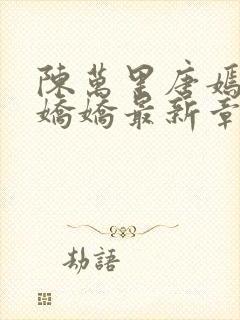 陳萬里唐嫣
嬌嬌最新章
劫語